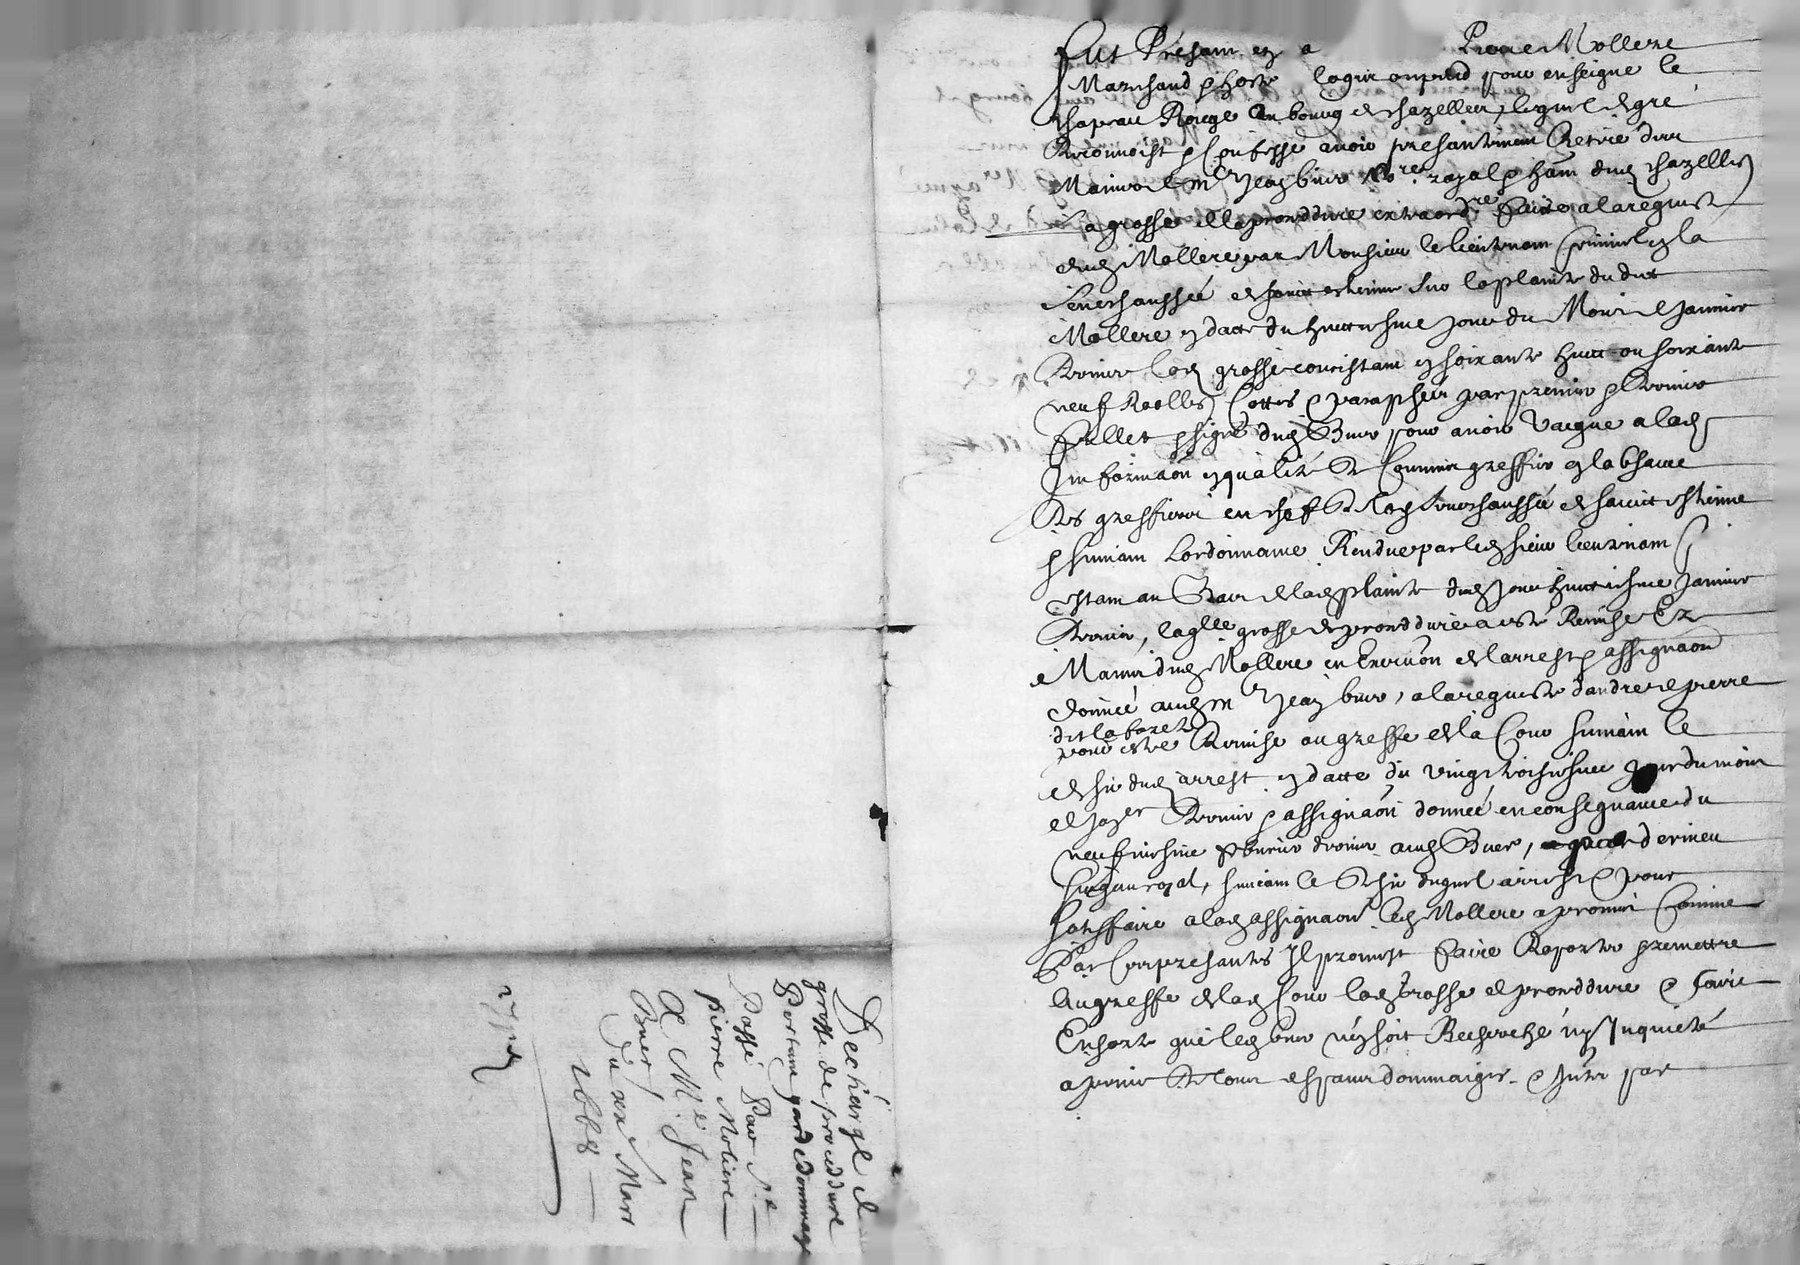 Fut Présant en a Pierre Mollere
Marchand & hoste logis ou pand pour enseigne le
chapeau Rouge au bourg de chazelles, lequel de gre
Reconnoist & Confesse avoir presantement Retiré des
Mains de Mr Jean buer no.re royal & ham dud chazelles
La grosse de la proceddure extraord.re faite a la requeste
dud Mollere par Monsieur le lieutenant criminel en la
Senechaussée de sainct estienne sur la plainte dudict
Mollere en datte du huictiesme jour du Mois de Janvier
dernier lad grosse concistant en soixante huict ou soixante
neuf Roolles Cottes & paraphés par premier & dernier
feullet & signé dud Buer pour avoir vacqué a lad
Informaôn en qualité de Commis greffier en labsance
des greffiers en chef de lad Senechaussée de sainct estienne
& suivant Lordonnance Rendue par led sieur lieutenant
estant au bas de lad plainte dud jour huictiesme janvier
dernier, laqlle grosse de proceddure a esté Remise Ez
Mains dud Mollere en Execuôn de larrest & assignaôn
donnée aud Mr Jean buer, a la requeste dandre & pierre
dit labaret
pour estre Remise au greffe de la Cour suivant le
dud arrest en datte du vingt troisiesme jour du mois
dernier & assignaôn donnée en consequance du
neufviesme febvrier dernier aud Buer,
royal, suivant le duquel arrest & pour
satisffaire a lad assignaôn led Mollere a promis Comme
Par Ces presantes Il promet faire Reporter & remettre
Au greffe de lad Cour lad Grosse de proceddure & faire
En sorte que led buer nen soit Recherché ny Inquieté
a peine de tous despans dommaiges & Intes par
Decharge de
grosse de proceddure
Portant gard dommage
Passé Par Sr
pierre Moliere
A Me Jean
Buer
Du xx Mars
1668